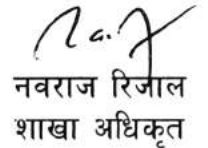 नवराज रिजाल
शाखा अधिकृत